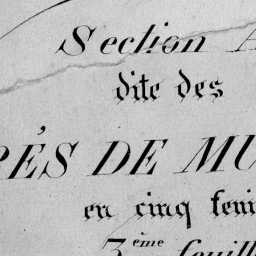 Section A
dite des
RÉS DE MU
en cinq feui
3ème feuill